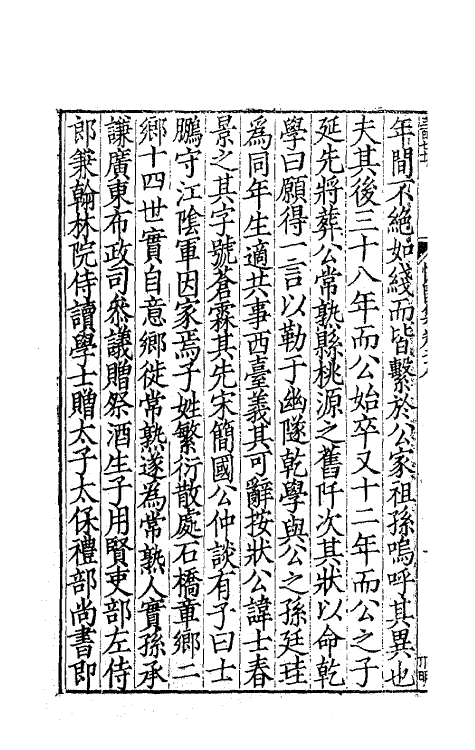 年間不絶如綫而皆繫於公家祖孫嗚呼其異也
夫其後三十八年而公始卒又十二年而公之子
延先將葬公常熟縣桃源之舊阡次其狀以命乾
學曰願得一言以勒于幽隧乾學與公之孫廷珪
為同年生適共事西臺義其可辭按狀公諱士春
景之其字號蒼霖其先宋簡國公仲談有子曰士
鵬守江陰軍因家焉子姓繁衍散處石橋章鄉二
鄉十四世實自意鄉徙常熟遂為常熟人實孫承
謙廣東布政司參議贈祭酒生子用賢吏部左侍
郎兼翰林院侍讀學士贈太子太保禮部尚書即